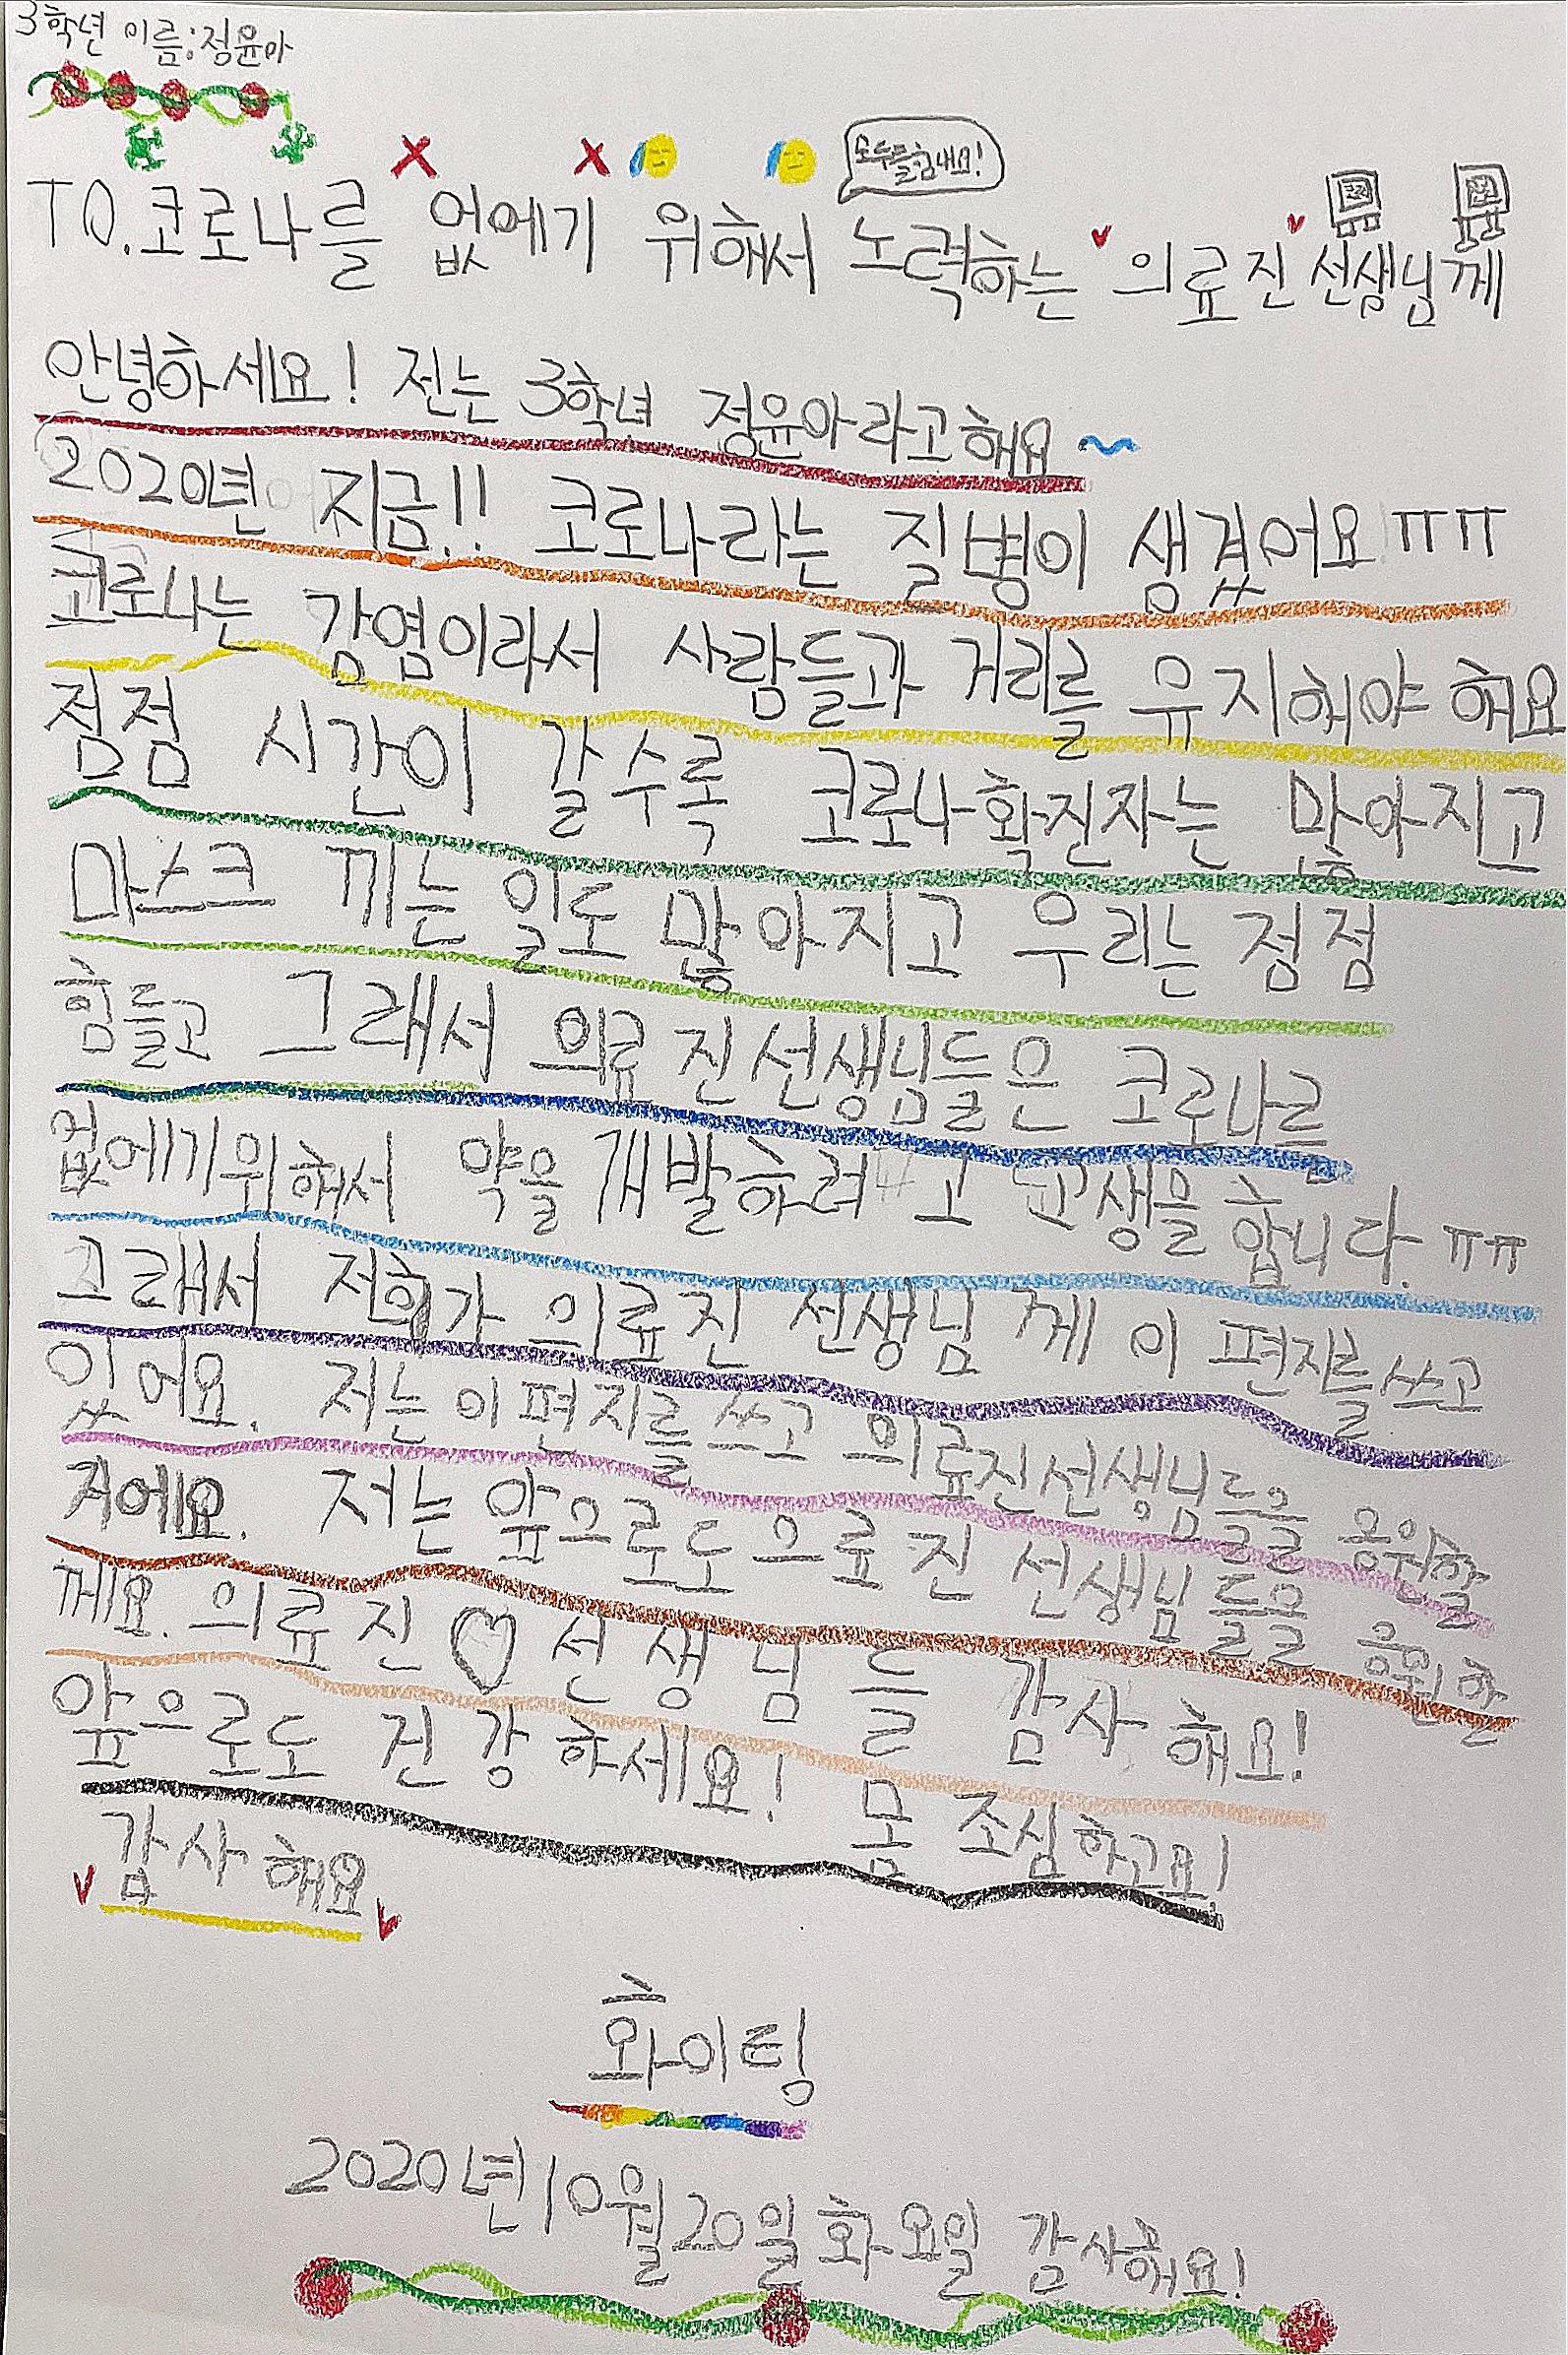 3학년 이름:정윤아
모두들힘내요!
TO.코로나를 없에기 위해서 노력하는 의료진 선생님께
안녕하세요! 전는 3학년 정윤아라고해요~
2020년 지금!! 코로나라는 질병이 생겼어요ㅠㅠ
코로나는 감염이라서 사람들과 거리를 유지해야 해요
점점 시간이 갈수록 코로나확진자는 많아지고
마스크 끼는 일도 많아지고 우리는 점점
힘들고 그래서 의료진선생님들은 코로나르
없에기위해서 약을개발하려고 고생을 합니다.ㅠㅠ
그래서 저희가 의료진 선생님 께 이 편지를쓰고
있어요. 저는이편지를 쓰고 의료진선생님들을 응원할
거에요. 저는 앞으로도 으료진 선생님들을 응원할
께요. 의료진♡선생님들 감사해요!
앞으로도 건강하세요! 몸 조심하고요!
감사해요
화이팅
2020년10월20일화요일 감사해요!